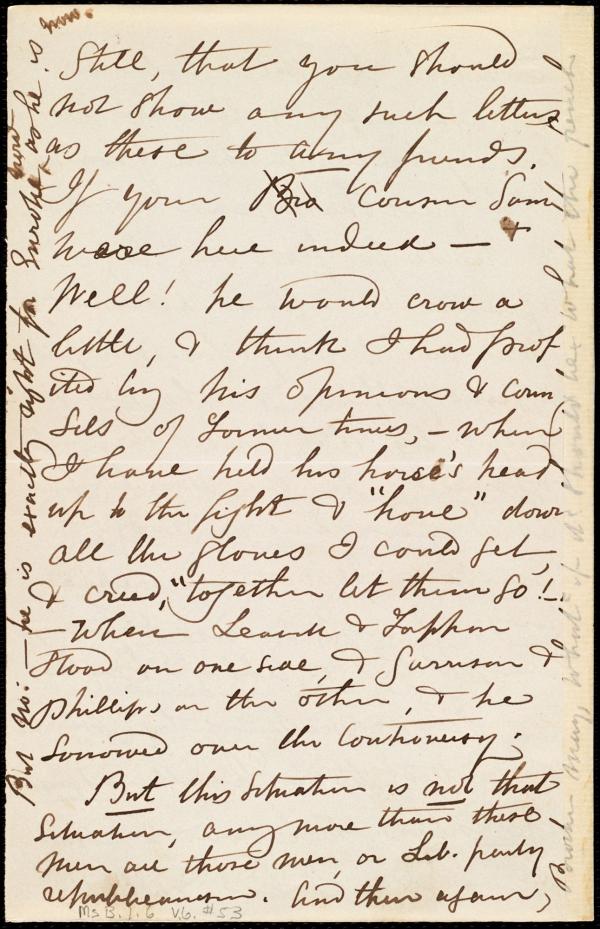 Still, that you should
not show any such letters
as these to any friends.
If your Bro cousin Sam
were here indeed — +
Well! he would crow a
little, & think I had prof
ited by his opinions & coun
sels of former times, – when
I have held his horse's head
up to the fight & "hove" down
all the gloves I could get,
& cried, "together let them go!"–
– When Leavitt & Tappan
stood on one side, & Garrison &
Phillips on the other, & he
sorrowed over the Controversy;
But this situation is not that
situation, any more than these
men are those men, or Lib. party
republicanism. And then again,
But no: – he is exactly right for Europe
now, as he is now.
Ms. B. 1. 6 V.6. #53